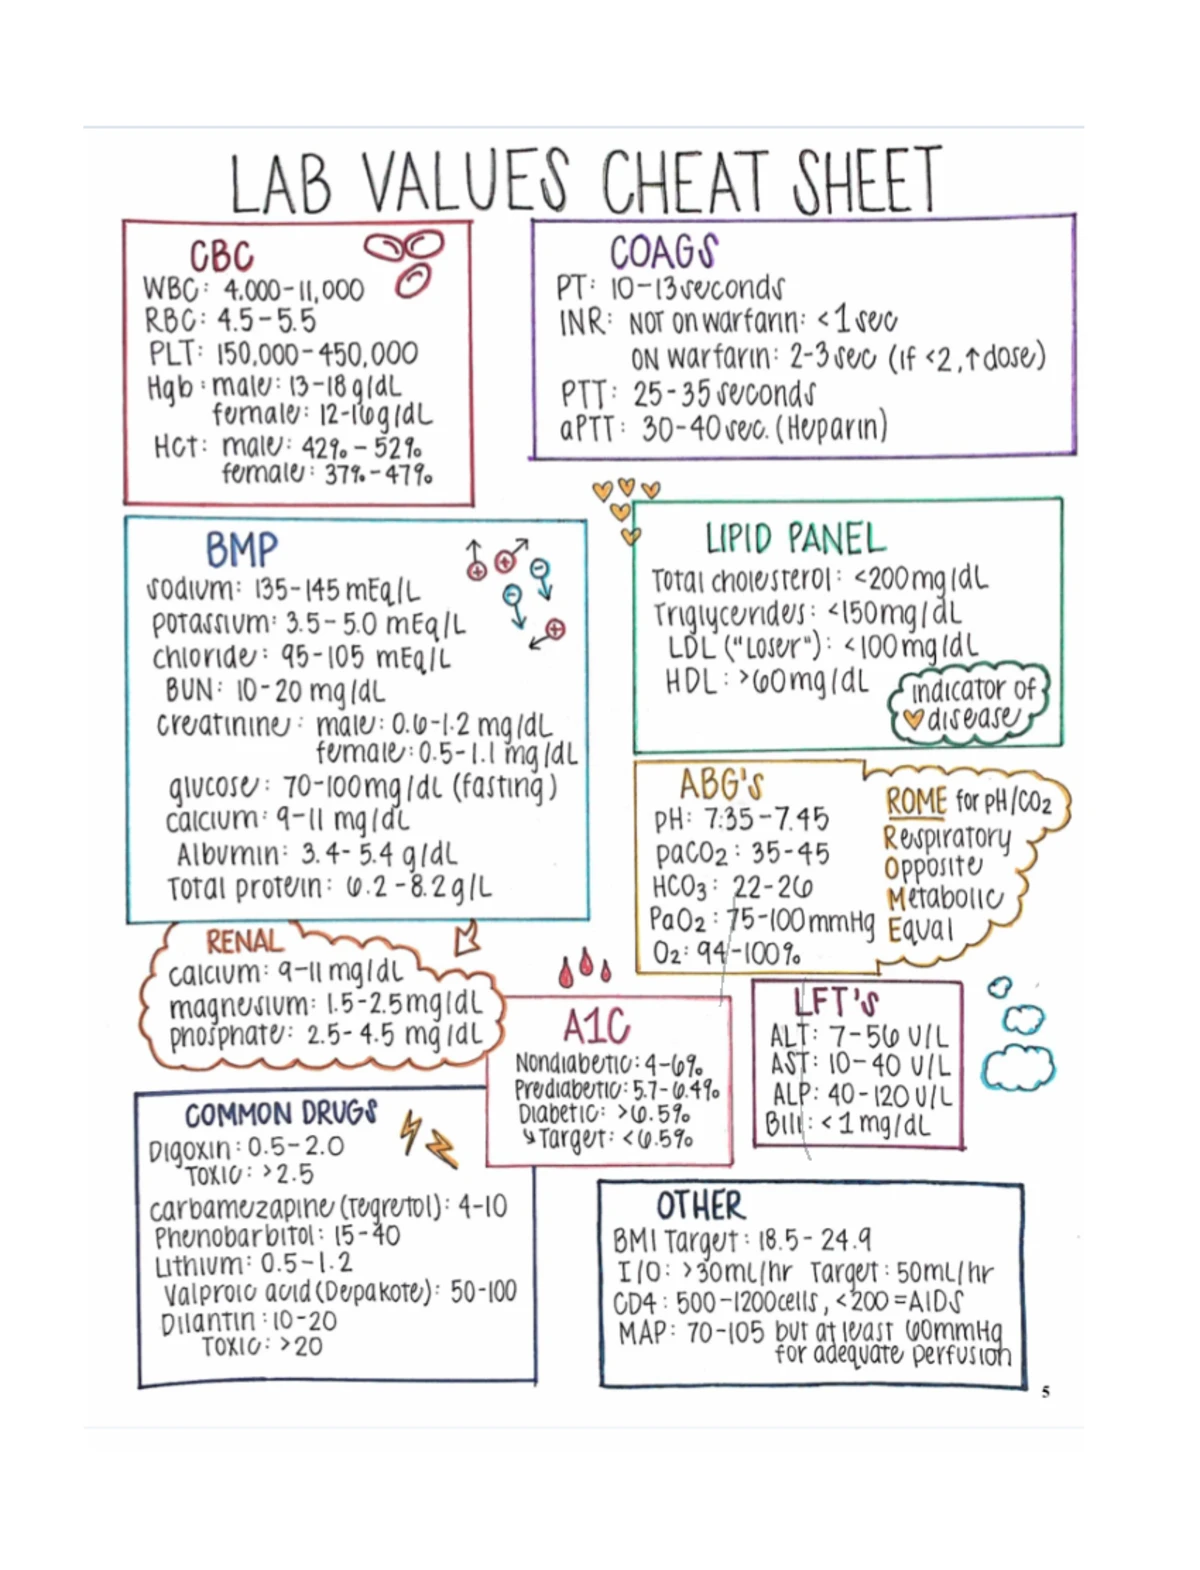 LAB VALUES CHEAT SHEET
CBC
WBC: 4,000-11,000
RBC: 4.5-5.5
PLT: 150,000-450,000
Hgb: male: 13-18 g/dL
female: 12-16 g/dL
Hct: male: 42%-52%
female: 37%-47%
COAGS
PT: 10-13 seconds
INR: NOT on warfarin: <1 sec
ON warfarin: 2-3 sec (if <2, ↑ dose)
PTT: 25-35 seconds
aPTT: 30-40 sec. (Heparin)
BMP
sodium: 135-145 mEq/L
potassium: 3.5-5.0 mEq/L
chloride: 95-105 mEq/L
BUN: 10-20 mg/dL
creatinine: male: 0.6-1.2 mg/dL
female: 0.5-1.1 mg/dL
glucose: 70-100 mg/dL (fasting)
calcium: 9-11 mg/dL
Albumin: 3.4-5.4 g/dL
Total protein: 6.2-8.2 g/L
LIPID PANEL
Total cholesterol: <200 mg/dL
Triglycerides: <150 mg/dL
LDL ("Loser"): <100 mg/dL
HDL: >60 mg/dL
indicator of
disease
ABG's
pH: 7.35-7.45
paCO2: 35-45
HCO3: 22-26
PaO2: 75-100 mmHg
O2: 94-100%
ROME for pH/CO2
Respiratory
Opposite
Metabolic
Equal
RENAL
calcium: 9-11 mg/dL
magnesium: 1.5-2.5 mg/dL
phosphate: 2.5-4.5 mg/dL
A1C
Nondiabetic: 4-6%
Prediabetic: 5.7-6.4%
Diabetic: >6.5%
↳ Target: <6.5%
LFT's
ALT: 7-56 U/L
AST: 10-40 U/L
ALP: 40-120 U/L
Bili: <1 mg/dL
COMMON DRUGS
Digoxin: 0.5-2.0
TOXIC: >2.5
carbamezapine (Tegretol): 4-10
Phenobarbitol: 15-40
Lithium: 0.5-1.2
Valproic acid (Depakote): 50-100
Dilantin: 10-20
TOXIC: >20
OTHER
BMI Target: 18.5-24.9
I/O: >30mL/hr Target: 50mL/hr
CD4: 500-1200 cells, <200 = AIDS
MAP: 70-105 but at least 60mmHg
for adequate perfusion
5